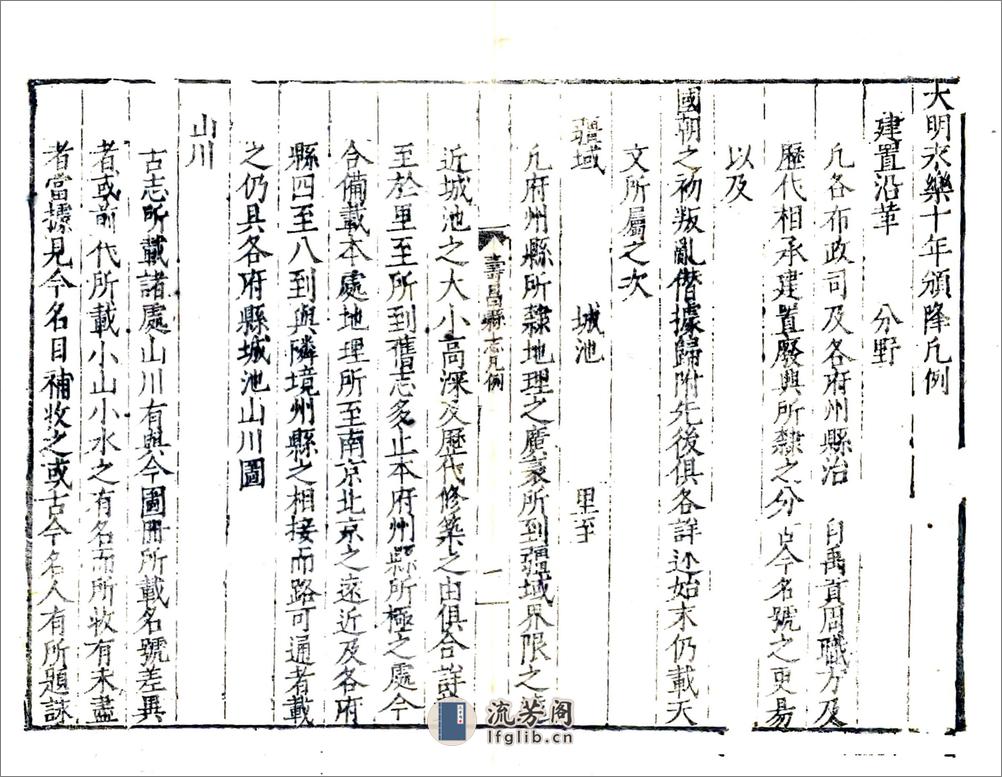 大明永樂十年頒降凡例
建置沿革 分野
凡各布政司及各府州縣治 自禹貢周職方及
歷代相承建置廢興所隸之分古今名號之更易
以及
國朝之初叛亂僭據歸附先後俱各詳述始末仍載天
文所屬之次
疆域 城池 里至
凡府州縣所隸地理之廣袤所到疆域界限之
近城池之大小高深及歷代修築之由俱合詳
至於里至所到舊志多止本府州縣所極之處今
合備載本處地理所至南京北京之遠近及各府
縣四至八到與隣境州縣之相接而路可通者載
之仍具各府縣城池山川圖
山川
古志所載諸處山川有與今圖冊所載名號差異
者或前代所載小山小水之有名而所收有未盡
者當據見今名目補收之或古今名人有所題詠
壽昌縣志凡例
一
流芳阁
lfglib.cn